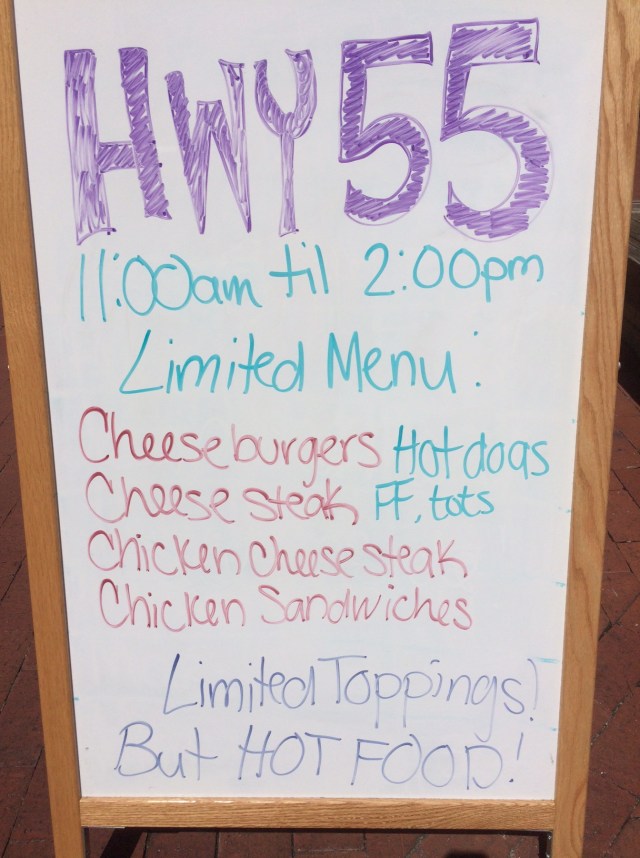 HWY 55
11:00am til 2:00pm
Limited Menu:
Cheeseburgers Hot dogs
Cheese steak FF, tots
Chicken Cheese steak
Chicken Sandwiches
Limited Toppings!
But HOT FOOD!